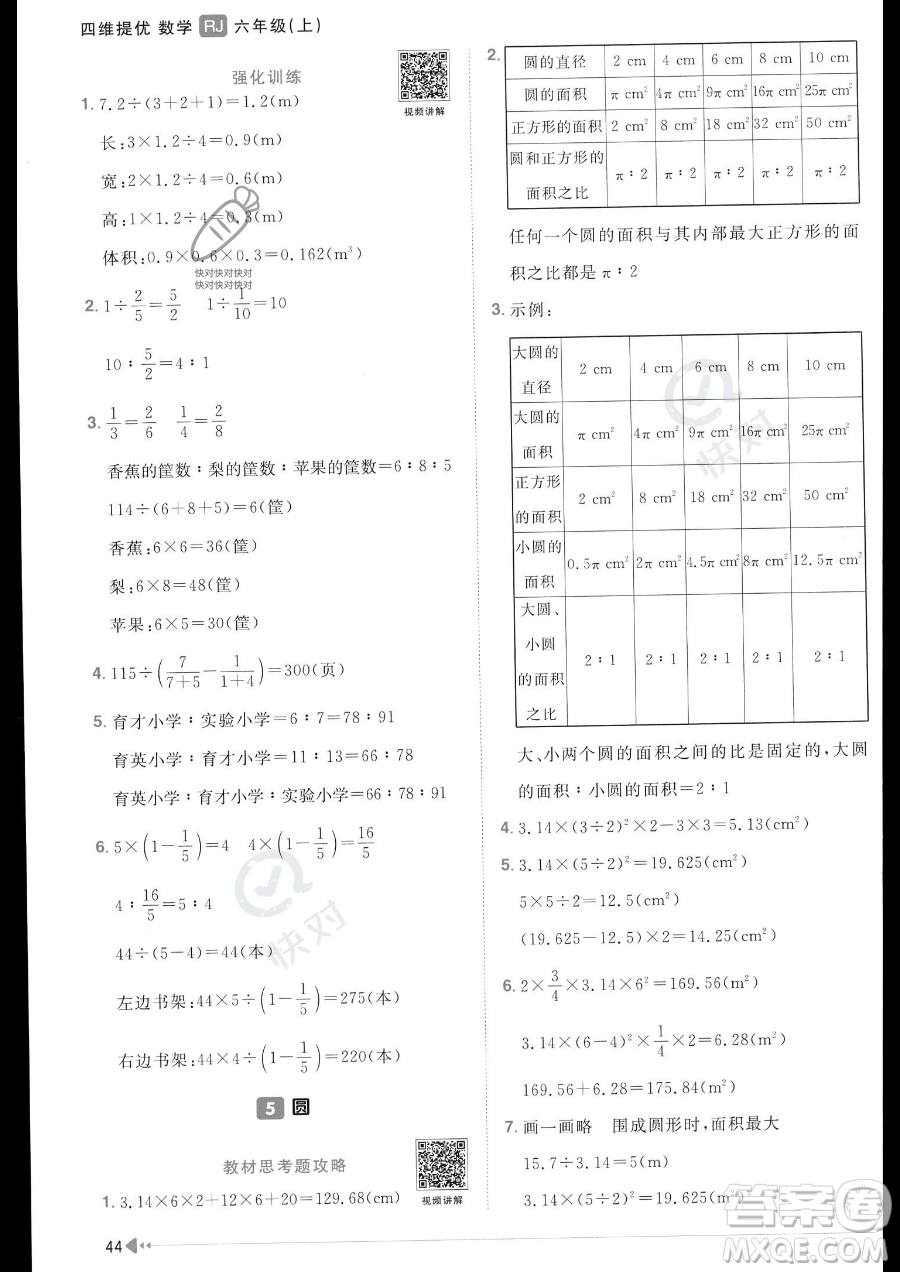 四维提优 数学 RJ 六年级(上)
强化训练
视频讲解
1. 7.2÷(3+2+1)=1.2(m)
长:3×1.2÷4=0.9(m)
宽:2×1.2÷4=0.6(m)
高:1×1.2÷4=0.3(m)
体积:0.9×0.6×0.3=0.162(m³)
快对快对快对
快对快对快对
2. 1÷2/5=5/2 1÷1/10=10
10∶5/2=4∶1
3. 1/3=2/6 1/4=2/8
香蕉的筐数∶梨的筐数∶苹果的筐数=6∶8∶5
114÷(6+8+5)=6(筐)
香蕉:6×6=36(筐)
梨:6×8=48(筐)
苹果:6×5=30(筐)
4. 115÷(7/(7+5)-1/(1+4))=300(页)
5. 育才小学∶实验小学=6∶7=78∶91
育英小学∶育才小学=11∶13=66∶78
育英小学∶育才小学∶实验小学=66∶78∶91
6. 5×(1-1/5)=4 4×(1-1/5)=16/5
4∶16/5=5∶4
44÷(5-4)=44(本)
左边书架:44×5÷(1-1/5)=275(本)
右边书架:44×4÷(1-1/5)=220(本)
快对
5 圆
教材思考题攻略
视频讲解
1. 3.14×6×2+12×6+20=129.68(cm)
44
2.
圆的直径 2 cm 4 cm 6 cm 8 cm 10 cm
圆的面积 π cm² 4π cm² 9π cm² 16π cm² 25π cm²
正方形的面积 2 cm² 8 cm² 18 cm² 32 cm² 50 cm²
圆和正方形的
面积之比 π∶2 π∶2 π∶2 π∶2 π∶2
任何一个圆的面积与其内部最大正方形的面
积之比都是π∶2
3. 示例:
大圆的
直径 2 cm 4 cm 6 cm 8 cm 10 cm
大圆的
面积 π cm² 4π cm² 9π cm² 16π cm² 25π cm²
正方形
的面积 2 cm² 8 cm² 18 cm² 32 cm² 50 cm²
小圆的
面积 0.5π cm² 2π cm² 4.5π cm² 8π cm² 12.5π cm²
大圆、
小圆
的面积
之比 2∶1 2∶1 2∶1 2∶1 2∶1
快对
大、小两个圆的面积之间的比是固定的,大圆
的面积∶小圆的面积=2∶1
4. 3.14×(3÷2)²×2-3×3=5.13(cm²)
5. 3.14×(5÷2)²=19.625(cm²)
5×5÷2=12.5(cm²)
(19.625-12.5)×2=14.25(cm²)
6. 2×3/4×3.14×6²=169.56(m²)
3.14×(6-4)²×1/4×2=6.28(m²)
169.56+6.28=175.84(m²)
7. 画一画略 围成圆形时,面积最大
15.7÷3.14÷2=2.5(m)
3.14×2.5²=19.625(m²)
答案圈
MXQE.COM